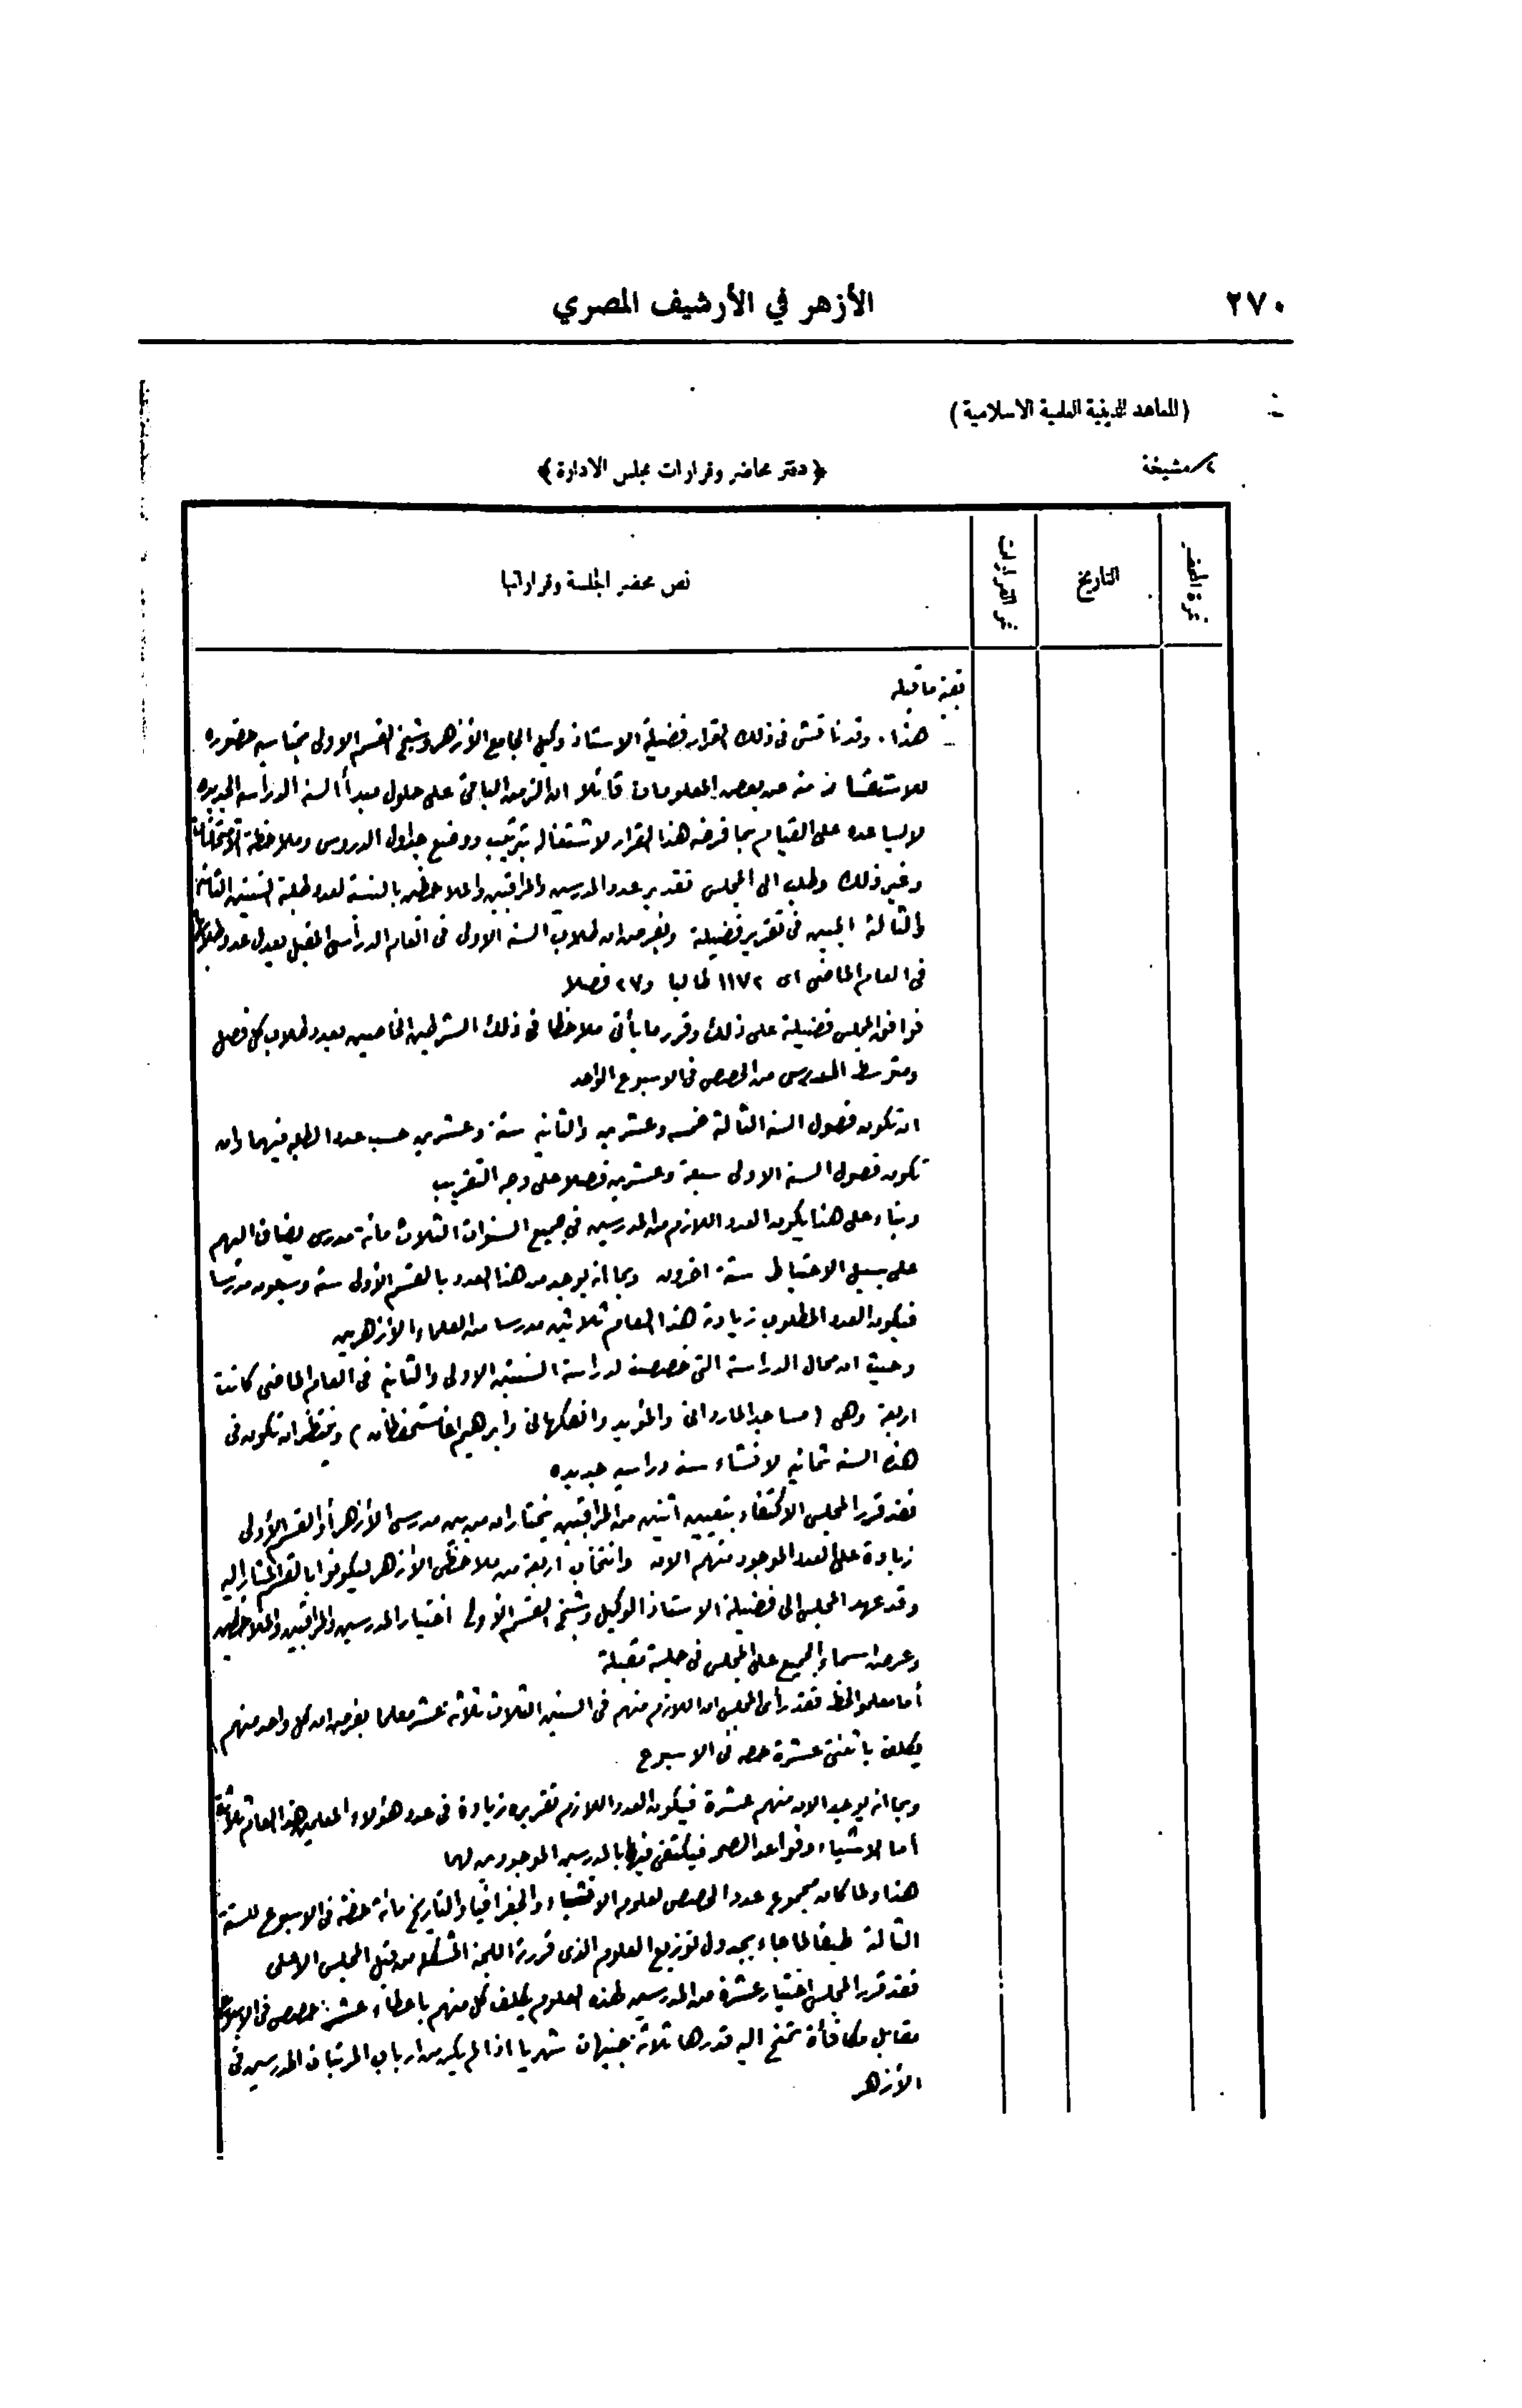 ٢٧٠
الأزهر في الأرشيف المصري
(المعاهد الدينية العلمية الاسلامية)
مشيخة
﴿دفتر محاضر وقرارات مجلس الادارة﴾
نمرة المحضر
التاريخ
نمر القرارات
نص محضر الجلسة وقراراتها
بقية ما قبله
هذا. وقد ناقش فى ذلك القرار فضيلة الاستاذ وكيل الجامع الأزهر وشيخ القسم الاولى حضوره
للاستفسار منه عن بعض المعلومات قائلا ان الزمن الباقى على حلول مبدأ السنة الدراسية الجديدة
لا يساعده على القيام بما فرضه هذا القرار لاشتغاله بترتيب ووضع جداول الدروس وملاحظة الامتحانات
وغير ذلك وطلب الى المجلس تقدير عدد المدرسين والمراقبين والملاحظين بالنسبة لعدد طلبة السنتين الثانية
والثالثة المبين فى تقرير فضيلته وبفرض ان طلاب السنة الاولى فى العام الدراسى المقبل يعدل عدد طلابها
فى العام الماضى اى ١١٧٢ طالبا و٢٧ فصلا
فوافق المجلس فضيلته على ذلك وقرر ما يأتى ملاحظا فى ذلك الشرطين الخاصين بعدد طلاب كل فصل
ومتوسط المدرس من الحصص فى الاسبوع الواحد
ان تكون فصول السنة الثالثة خمسه وعشرين والثانية ستة وعشرين حسب عدد الطلبه فيهما وان
تكون فصول السنة الاولى سبعة وعشرين فصلا على وجه التقريب
وبناء على هذا يكون العدد اللازم من المدرسين فى جميع السنوات الثلاث مائة مدرس يضاف اليهم
على سبيل الاحتياط ستة اخرون وبما انه يوجد من هذا العدد بالقسم الأولى ستة وسبعون مدرسا
فيكون العدد المطلوب زيادة هذا العام ثلاثين مدرسا من العلماء الأزهريين
وحيث ان محال الدراسة التى خصصت لدراسة السنتين الاولى والثانية فى العام الماضى كانت
اربعة وهى (مساجد المارداني والمؤيد والفكهانى وابراهيم اغا مستحفظان) وينتظر ان تكون فى
هذه السنة ثمانية لانشاء سنة دراسية جديده
فقد قرر المجلس الاكتفاء بتعيين اثنين من المراقبين يختاران من بين مدرسى الأزهر أو القسم الأولى
زيادة على العدد الموجود منهم الان وانتخاب اربعة من ملاحظى الأزهر ليكونوا بالقسم المشار اليه
وقد عهد المجلس الى فضيلة الاستاذ الوكيل وشيخ القسم الأولى اختيار المدرسين والمراقبين والملاحظين
وعرض اسماء الجميع على المجلس فى جلسة مقبلة
أما معلمو الخط فقد رأى المجلس ان اللازم منهم فى السنين الثلاث ثلاثة عشر معلما بفرض ان كل واحد منهم
يكلف باثنتى عشرة حصة فى الاسبوع
وبما انه يوجد الان منهم عشرة فيكون العدد اللازم تقريره زيادة فى عدد هؤلاء المعلمين هذا العام ثلاثة
أما الاشياء وقواعد الصحة فيكتفى فيها بالمدرسين الموجودين لها
هذا ولما كان مجموع عدد الحصص لعلوم الاشياء والجغرافيا والتاريخ مائة حصة فى الاسبوع للسنة
الثالثة طبقا لما جاء بجدول توزيع العلوم الذى قررته اللجنة المشكلة من قبل المجلس الاعلى
فقد قرر المجلس اختيار عشرة من المدرسين لهذه العلوم يكلف كل منهم باعطاء عشر حصص فى الاسبوع
مقابل مكافأة تمنح اليه قدرها ثلاثة جنيهات شهريا اذا لم يكن من ارباب المرتبات المدرسين فى
الأزهر